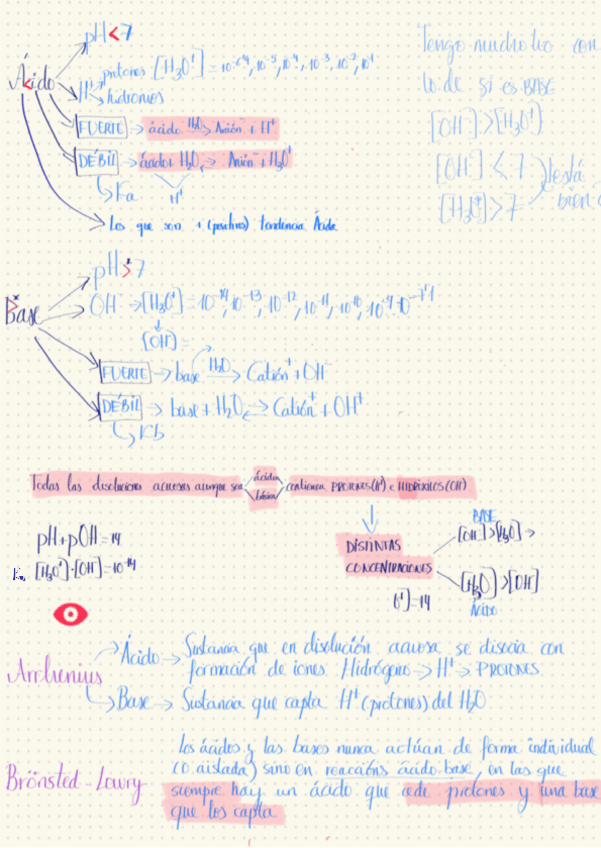 pH<7
Ácido
H⁺ protones [H₃O⁺] = 10⁻⁶, 10⁻⁵, 10⁻⁴, 10⁻³, 10⁻², 10¹
hidronios
FUERTE → ácido H₂O→ Anión⁻ + H⁺
DÉBIL → ácido+ H₂O → Anión⁻ + H₃O⁺
Ka H⁺
Los que son + (positivo) tendencia Ácida
Tengo mucho lio con
lo de si es BASE
[OH⁻]>[H₃O⁺]
[OH⁻] < 7
[H₃O⁺] > 7
está
bien
pH>7
Base
OH⁻ → [H₃O⁺] = 10⁻¹⁴, 10⁻¹³, 10⁻¹², 10⁻¹¹, 10⁻¹⁰, 10⁻⁹
[OH⁻] =
FUERTE → base H₂O→ Catión⁺ + OH⁻
DÉBIL → base + H₂O ⇄ Catión⁺ + OH⁺
Kb
Todas las disoluciones acuosas aunque sean ácidas básicas contienen PROTONES (H⁺) e HIDRÓXILOS (OH⁻)
pH + pOH = 14
[H₃O⁺]·[OH⁻] = 10⁻¹⁴
DISTINTAS
CONCENTRACIONES
BASE
[OH⁻]>[H₃O⁺] →
[H₃O⁺]>[OH⁻]
Ácido
=14
Arrhenius
Ácido → Sustancia que en disolución acuosa se disocia con
formación de iones Hidrógeno → H⁺ → PROTONES
Base → Sustancia que capta H⁺ (protones) del H₂O
Brönsted-Lowry
Los ácidos y las bases nunca actúan de forma individual
(o aislada) sino en reaccións ácido base, en las que
siempre hay un ácido que cede protones y una base
que los capta